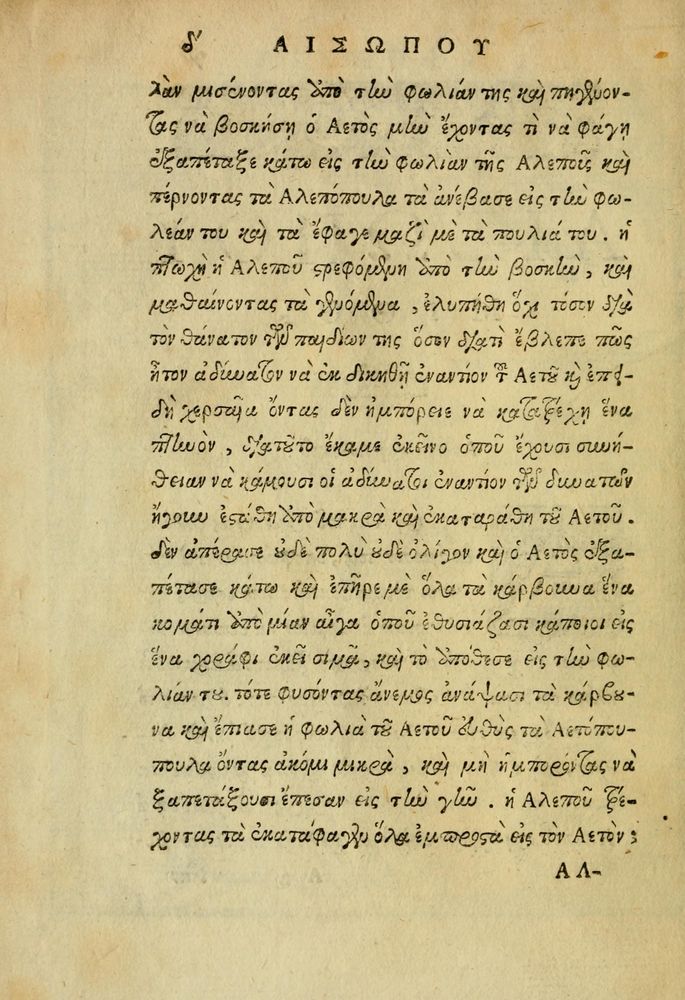 δ' ΑΙΣΩΠΟΥ
λὰν μισεύοντας ἀπὸ τὴν φωλιάν της καὶ πηγαίνον-
τας νὰ βοσκήσῃ ὁ Αετὸς μὴν ἔχοντας τὶ νὰ φάγῃ
ἐξαπέταξε κάτω εἰς τὴν φωλιὰν τῆς Αλεποῦς καὶ
πέρνοντας τὰ Αλεπόπουλα τὰ ἀνέβασε εἰς τὴν φω-
λεάν του καὶ τὰ ἔφαγε μαζὶ μὲ τὰ πουλιά του. ἡ
πτωχὴ ἡ Αλεποῦ στρεφόμενη ἀπὸ τὴν βοσκὴν, καὶ
μαθαίνοντας τὰ γενόμενα, ἐλυπήθη ὄχι τόσον διὰ
τὸν θάνατον τῶν παιδίων της ὅσον διατὶ ἔβλεπε πῶς
ἦτον ἀδύνατον νὰ ἐκδικηθῇ ἐναντίον τοῦ Αετοῦ καὶ ἐπει-
δὴ χερσαῖα ὄντας δὲν ἠμπόρειε νὰ κατατρέχῃ ἕνα
πτηνὸν, διατοῦτο ἔκαμε ἐκεῖνο ὁποῦ ἔχουσι συνή-
θειαν νὰ κάμουσι οἱ ἀδύνατοι ἐναντίον τῶν δυνατῶν
ἤγουν ἐστάθη ἀπὸ μακρὰ καὶ ἐκαταράθη τοῦ Αετοῦ.
δὲν ἀπέρασε οὐδὲ πολὺ οὐδὲ ὀλίγον καὶ ὁ Αετὸς ἐξα-
πέτασε κάτω καὶ ἐπῆρε μὲ ὅλα τὰ κάρβουνα ἕνα
κομάτι ἀπὸ μίαν αἶγα ὁποῦ ἐθυσιάζασι κάποιοι εἰς
ἕνα χοράφι ἐκεῖ σιμᾶ, καὶ τὸ ἀπόθεσε εἰς τὴν φω-
λιάν του. τότε φυσόντας ἄνεμος ἀνάψασι τὰ κάρβου-
να καὶ ἔπιασε ἡ φωλιὰ τοῦ Αετοῦ εὐθὺς τὰ Αετόπου-
πουλα ὄντας ἀκόμι μικρὰ, καὶ μὴ ἠμπορόντας νὰ
ξαπετάξουσι ἔπεσαν εἰς τὴν γῆν. ἡ Αλεποῦ τρέ-
χοντας τὰ ἐκατάφαγεν ὅλα ἐμπροστὰ εἰς τὸν Αετόν;
ΑΛ-